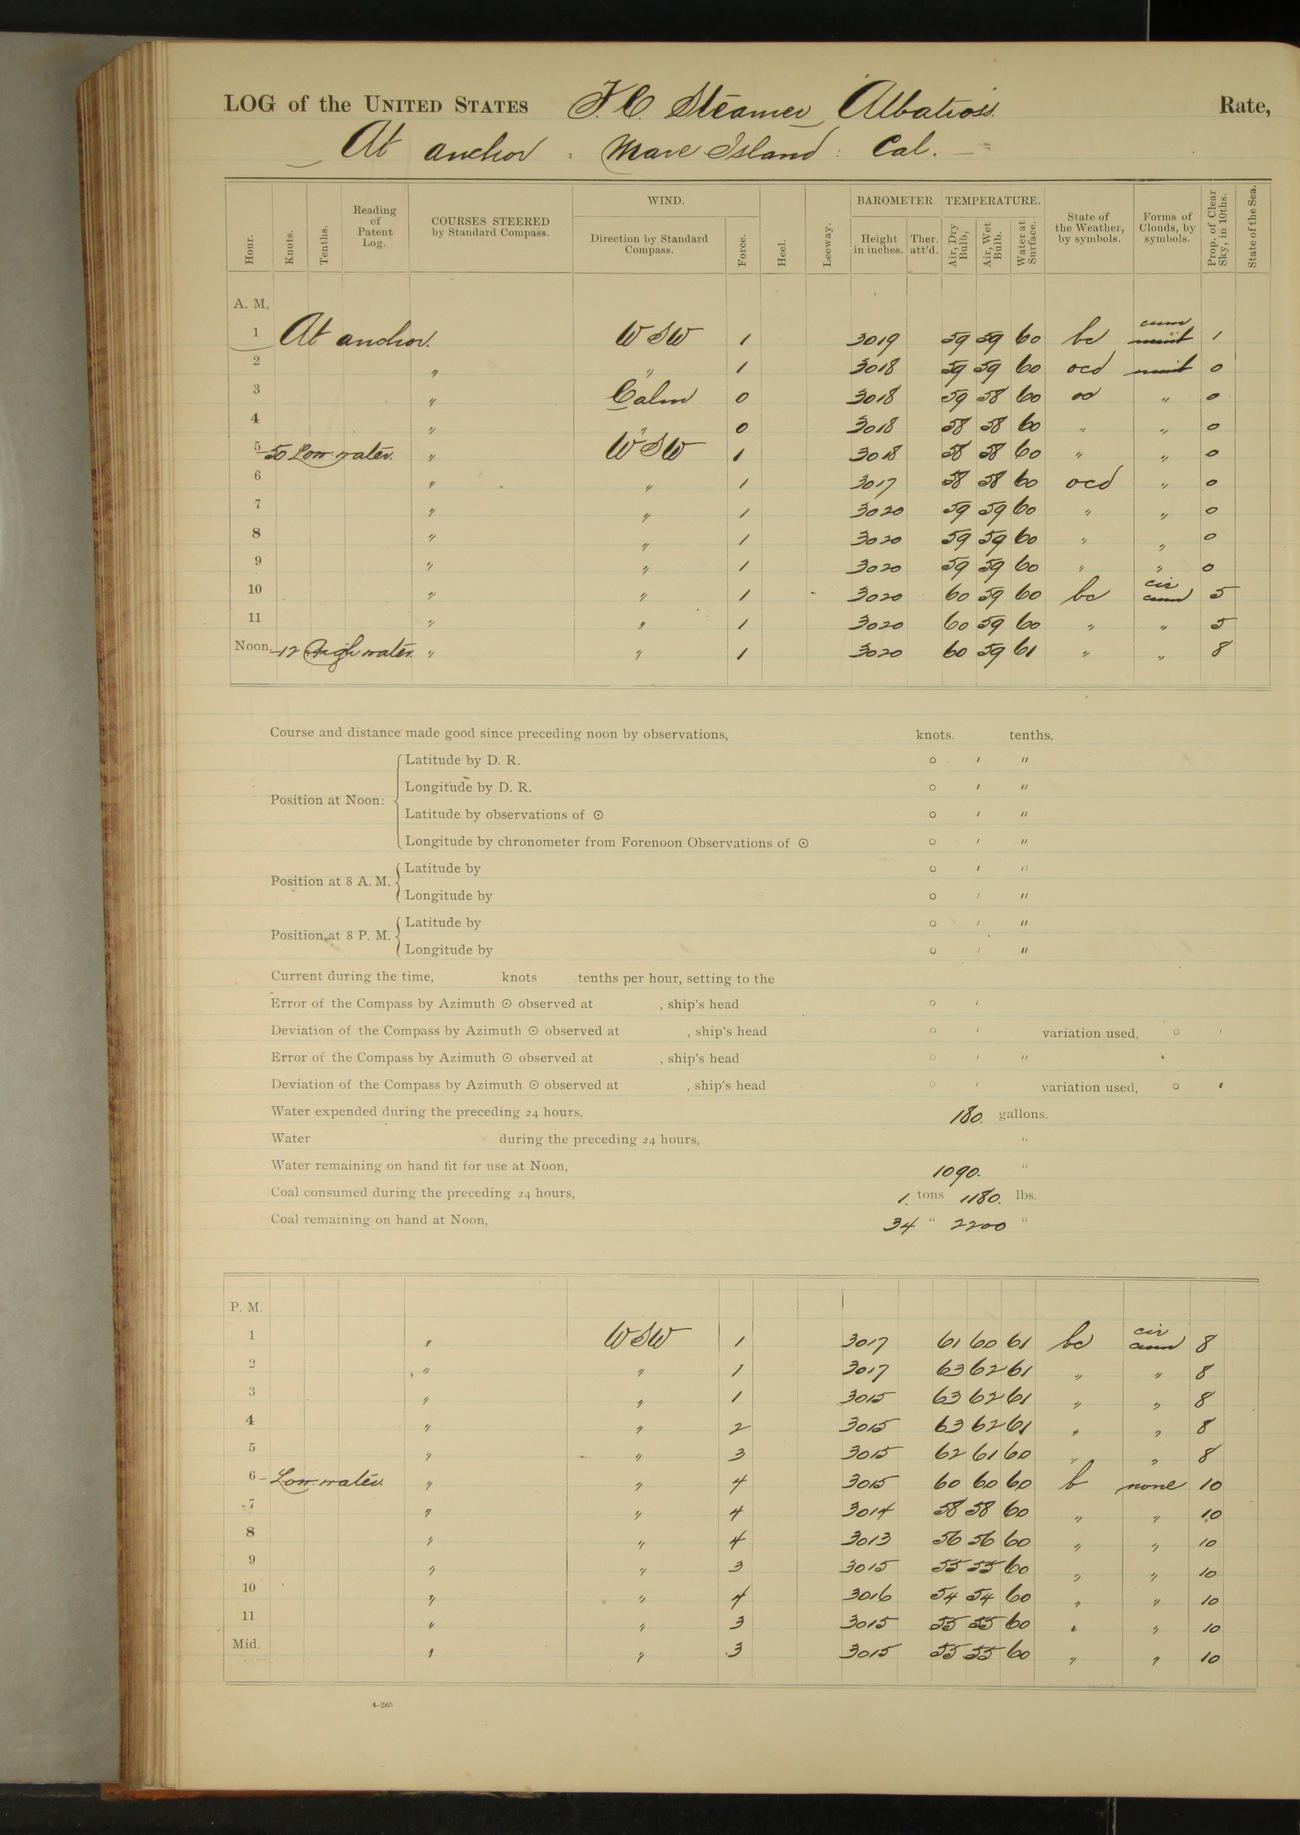 LOG of the UNITED STATES F. C. Steamer Albatross. Rate,
At anchor : Mare Island : Cal.
Hour. Knots. Tenths. Reading of Patent Log. COURSES STEERED by Standard Compass. WIND. Direction by Standard Compass. Force. Heel. Leeway. BAROMETER Height in inches. Ther. att'd. TEMPERATURE. Air, Dry Bulb, Air, Wet Bulb. Water at Surface. State of the Weather, by symbols. Forms of Clouds, by symbols. Prop. of Clear Sky, in 10ths. State of the Sea.
A. M.
1 At anchor. WSW 1 3019 59 59 60 bc cum 1
2 " " 1 3018 59 59 60 ocd 0
3 " Calm 0 3018 59 58 60 " 0
4 " " 0 3018 58 58 60 " " 0
5 -50 Low water. " WSW 1 3018 58 58 60 " " 0
6 " " 1 3017 58 58 60 ocd " 0
7 " " 1 3020 59 59 60 " " 0
8 " " 1 3020 59 59 60 " " 0
9 " " 1 3020 59 59 60 " " 0
10 " " 1 3020 60 59 60 bc cir cum 5
11 " " 1 3020 60 59 60 " " 5
Noon. -12 High water. " " 1 3020 60 59 61 " " 8
Course and distance made good since preceding noon by observations, knots. tenths.
Position at Noon:
Latitude by D. R. ° ′ ″
Longitude by D. R. ° ′ ″
Latitude by observations of ☉ ° ′ ″
Longitude by chronometer from Forenoon Observations of ☉ ° ′ ″
Position at 8 A. M.
Latitude by ° ′ ″
Longitude by ° ′ ″
Position at 8 P. M.
Latitude by ° ′ ″
Longitude by ° ′ ″
Current during the time, knots tenths per hour, setting to the
Error of the Compass by Azimuth ☉ observed at , ship's head ° ′
Deviation of the Compass by Azimuth ☉ observed at , ship's head ° ′ variation used, ° ′
Error of the Compass by Azimuth ☉ observed at , ship's head ° ′ ″
Deviation of the Compass by Azimuth ☉ observed at , ship's head ° ′ variation used, ° ′
Water expended during the preceding 24 hours, 180. gallons.
Water during the preceding 24 hours, "
Water remaining on hand fit for use at Noon, 1090. "
Coal consumed during the preceding 24 hours, 1. tons 1180. lbs.
Coal remaining on hand at Noon, 34 " 2200 "
P. M.
1 " WSW 1 3017 61 60 61 bc cir cum 8
2 " " 1 3017 63 62 61 " " 8
3 " " 1 3015 63 62 61 " " 8
4 " " 2 3015 63 62 61 " " 8
5 " " 3 3015 62 61 60 " " 8
6 - Low water. " " 4 3015 60 60 60 b none 10
7 " " 4 3014 58 58 60 " " 10
8 " " 4 3013 56 56 60 " " 10
9 " " 3 3015 55 55 60 " " 10
10 " " 4 3016 54 54 60 " " 10
11 " " 3 3015 55 55 60 " " 10
Mid. " " 3 3015 55 55 60 " " 10
4-265